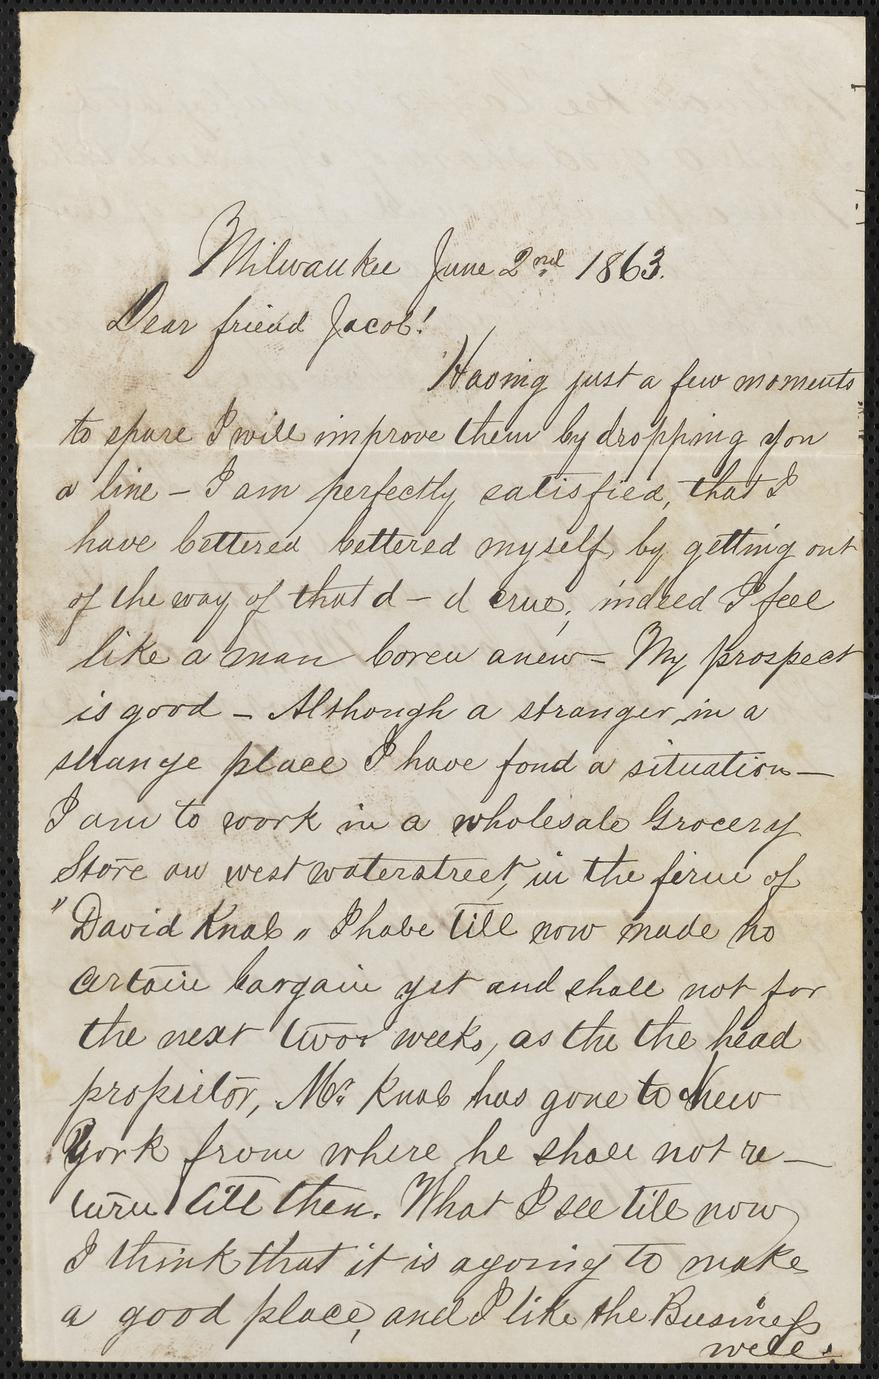 Milwaukee June 2nd 1863.
Dear friend Jacob!
Having just a few moments
to spare I will improve them by dropping you
a line – I am perfectly satisfied, that I
have bettered bettered myself, by getting out
of the way of that d – d crue, indeed I feel
like a man boren anew – My prospect
is good – Although a stranger in a
strange place I have fond a situation –
I am to work in a wholesale Grocery
Store on west waterstreet, in the firm of
"David Knab" I habe till now made no
certain bargain yet and shall not for
the next two weeks, as the the head
Mr. Knab has gone to New
York from where he shall not re–
turn till then. What I see till now
I think that it is agoing to make
a good place, and I like the Business
well.